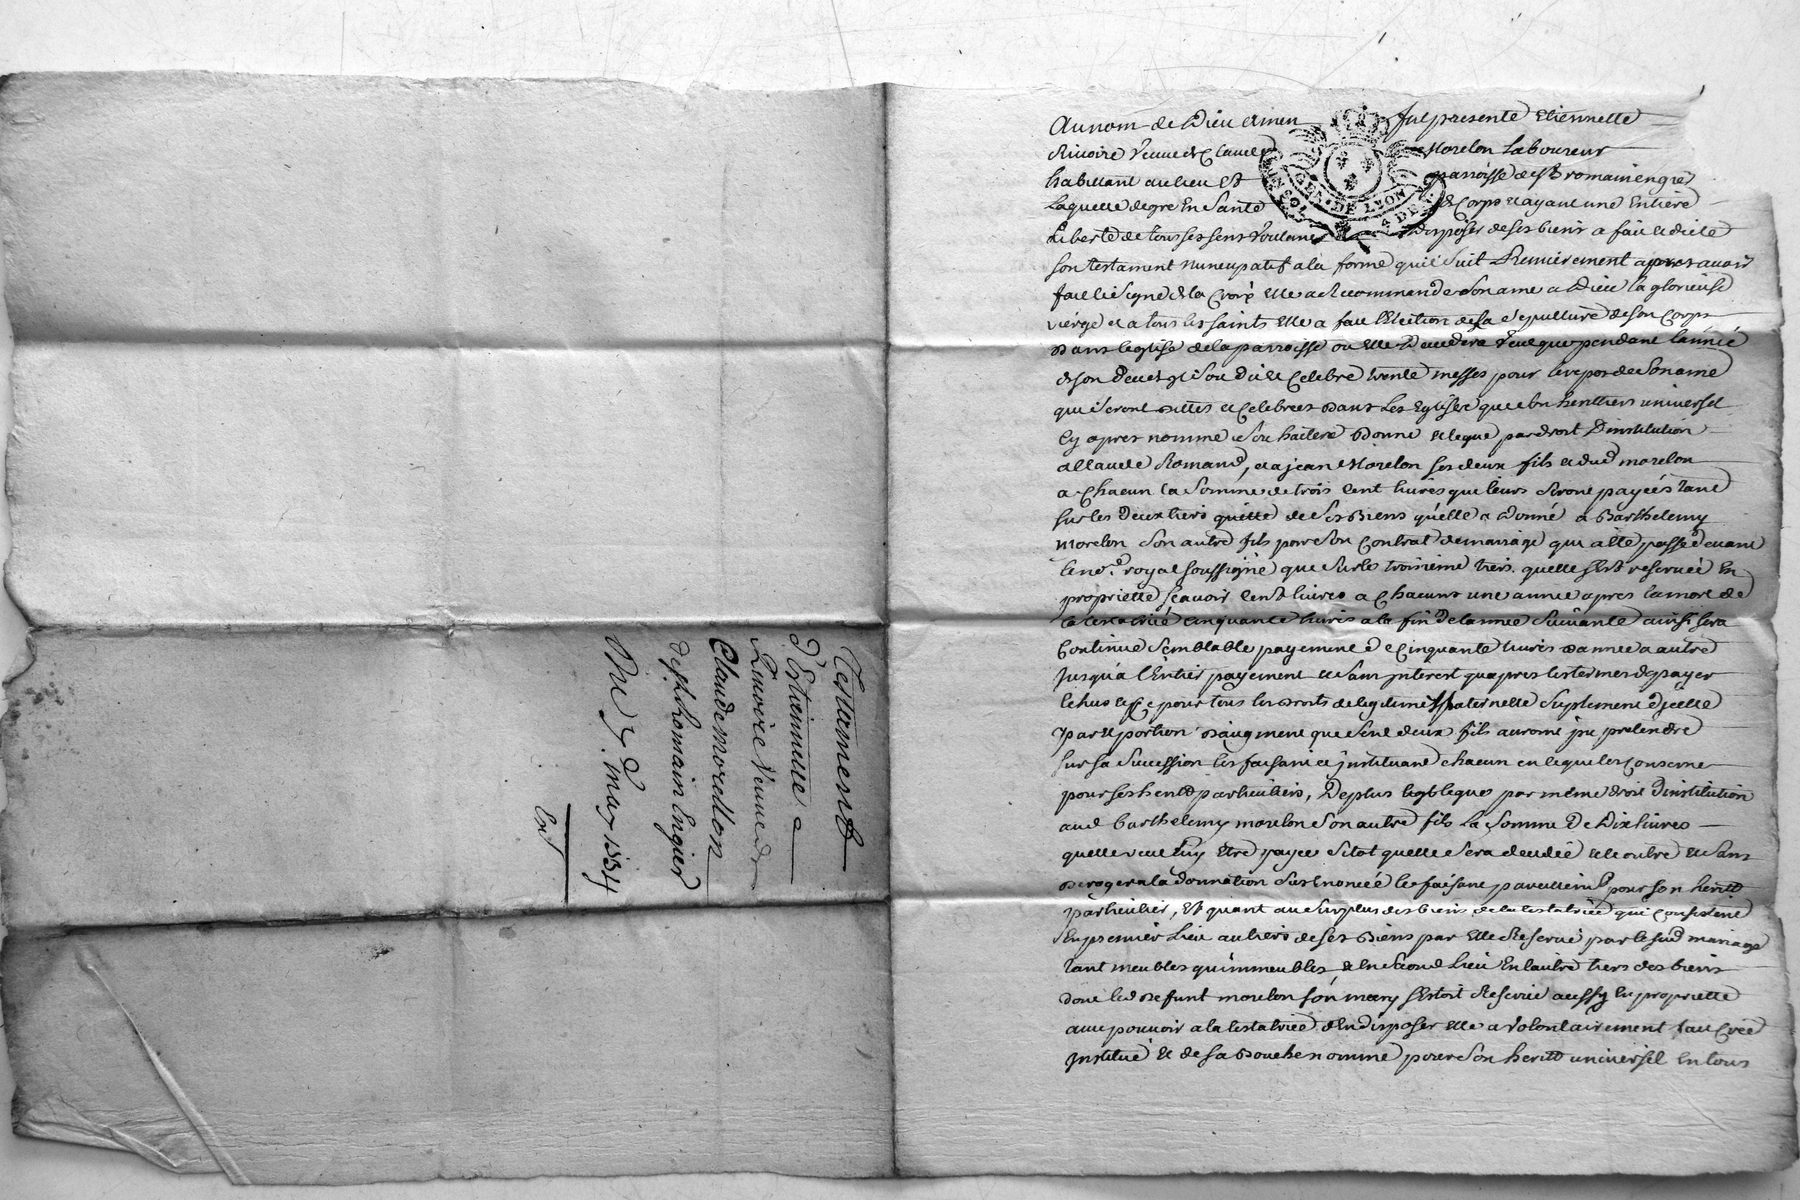 Testament
d'Estiennette
Rivoire Veuve de
Claude morellon
de st Romain Engier
Du 7 may 1534
Ext
Au nom de Dieu Amen fut presente Etiennette
Rivoire veuve de Claude Morelon Laboureur
habittant au lieu et parroisse de st romain engies
Laquelle de gre En Santé de Corps et ayant une Entiere
Liberté de tous ses sens voulant disposer de ses biens a fait et dicté
son testament nuncupatif a la forme qui suit Premierement apres avoir
fait le signe de la Croix Elle a Recommandé son ame a Dieu la glorieuse
vierge et a tous les saints Elle a fait l'Election de sa sepulture de son Corps
Dans leglise de la parroisse ou Elle Decedera veut que pendant lannée
de son deces il soit dit et Celebré trente messes pour le repos de son ame
qui seront dittes et Celebrees dans Les Eglises que son heritier universel
Cy apres nommé souhaitera Donne et legue par droit D'institution
a Claude Romand, et a jean Morelon ses deux fils et dud morelon
a Chacun la somme de trois Cent livres qui leurs seront payées tant
sur les deux tiers quitte de ses Biens qu'elle a donné a Barthelemy
Morelon son autre fils par son Contrat de mariage qui a été passé devant
le nore royal soussigné que sur le troisieme tiers quelle s'est reservée En
proprietté scavoir Cent livres a Chacuns une année apres la mort de
la testatrice Cinquante livres a la fin de lannée suivante ainsi sera
Continué semblable payement de Cinquante livres dannée a autre
jusqu'a l'Entier payement et sans jnterest qu'apres les termes de payer
échus et ce pour tous les droits de legitime paternelle suplement d'jcelle
part et portion d'augment que sesd deux fils auront pu pretendre
sur sa succession les faisant et jnstituant chacun en le que les Conserne
pour ses herits particuliers, De plus legue par même droit d'institution
aud Barthelemy morelon son autre fils La somme De Dix livres
quelle veut luy Etre payée sitot quelle sera decedée et le outre et sans
deroger a la donnation sus Enoncée le faisant pareillemt pour son heritr
particulier, Et quant au surplus des biens de la testatrice qui consistent
En premier Lieu au tiers de ses Biens par Elle Reservé par le sud mariage
tant meubles qu'immeubles, et En second Lieu En lautre tiers des biens
dont led defunt morelon son mary s'Etoit Reservé aussy En proprietté
avec pouvoir a la testatrice d'En disposer Elle a volontairement fait Créé
jnstitué et de sa Bouche nommé pour son herit universel En tous